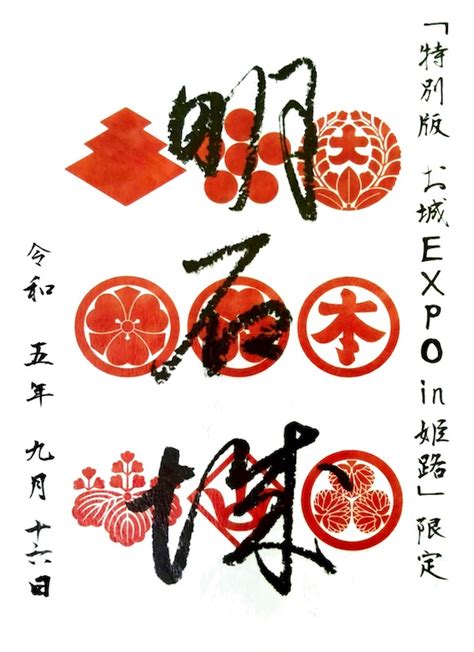 「特別版 お城EXPO in 姫路」限定
大
明石城
本
令和 五年 九月 十六日